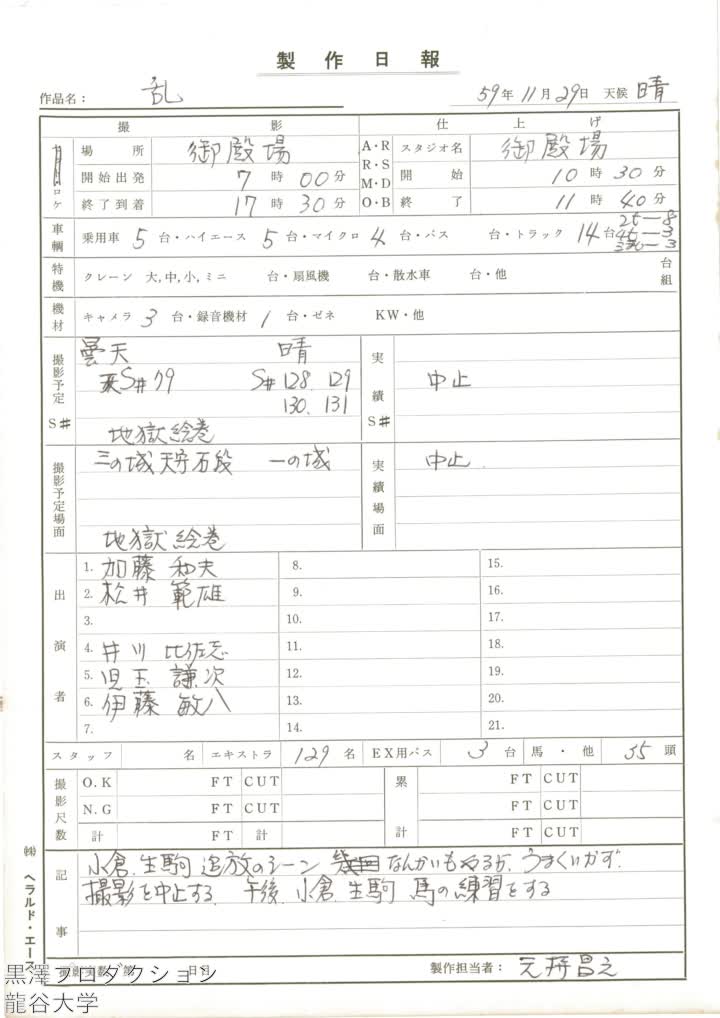 製作日報
作品名: 乱 59年11月29日 天候 晴
撮影 仕上げ
ロケ 場所 御殿場 A・R スタジオ名 御殿場
開始出発 7時00分 R・S M・D 開始 10時30分
終了到着 17時30分 O・B 終了 11時40分
車輌 乗用車 5台・ハイエース 5台・マイクロ 4台・バス 台・トラック 14台 2t-8 4t-3
特機 クレーン 大,中,小,ミニ 台・扇風機 台・散水車 台・他 台組
機材 キャメラ 3台・録音機材 1台・ゼネ KW・他
撮影予定S# 曇天 晴 実績S#
S#79 S#128. 129 中止
130. 131
地獄絵巻
撮影予定場面 三の城 天守石段 一の城 実績場面 中止.
地獄絵巻
出演者
1. 加藤 和夫 8. 15.
2. 松井 範雄 9. 16.
3. 10. 17.
4. 井川 比佐志 11. 18.
5. 児玉 謙次 12. 19.
6. 伊藤 敏八 13. 20.
7. 14. 21.
スタッフ 名 エキストラ 129名 EX用バス 3台 馬・他 35頭
撮影尺数 O.K FT CUT 累計 FT CUT
N.G FT CUT FT CUT
計 FT 計 FT CUT
記事 小倉. 生駒 追放のシーン なんかいもやるが、うまくいかず.
撮影を中止する. 午後. 小倉. 生駒 馬の練習をする
㈱ ヘラルド・エース
撮影実数 第 日目 製作担当者:昌之
黒澤プロダクション
龍谷大学